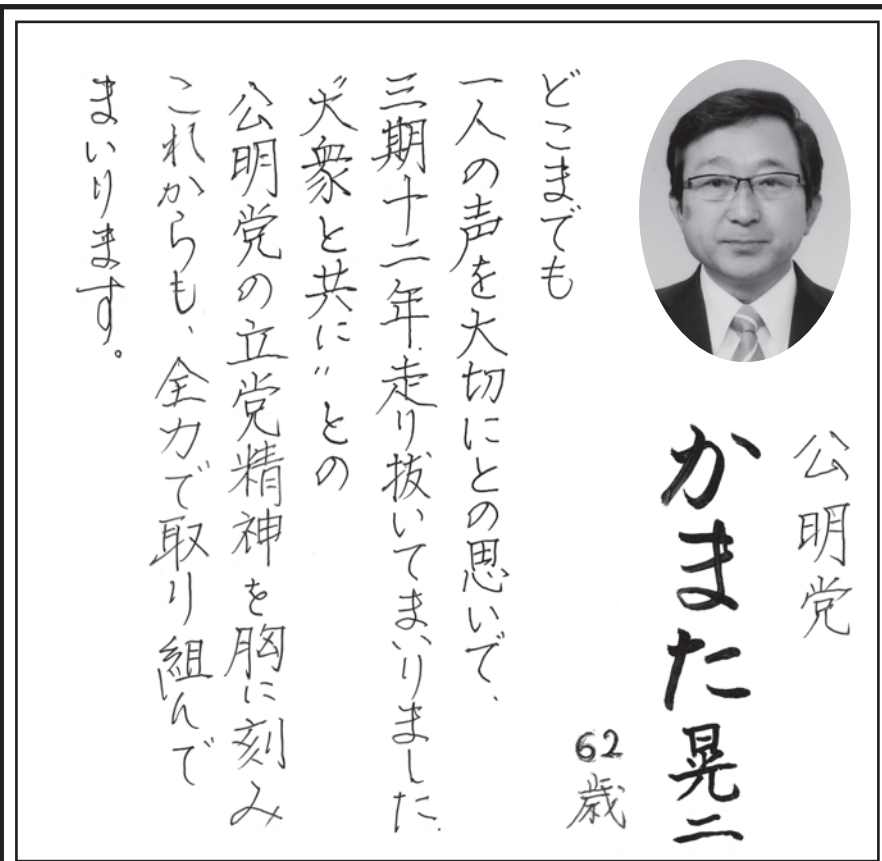 公明党
かまた晃二
62歳
どこまでも
一人の声を大切にとの思いで、
三期十二年、走り抜いてまいりました。
〝大衆と共に〟との
公明党の立党精神を胸に刻み
これからも、全力で取り組んで
まいります。